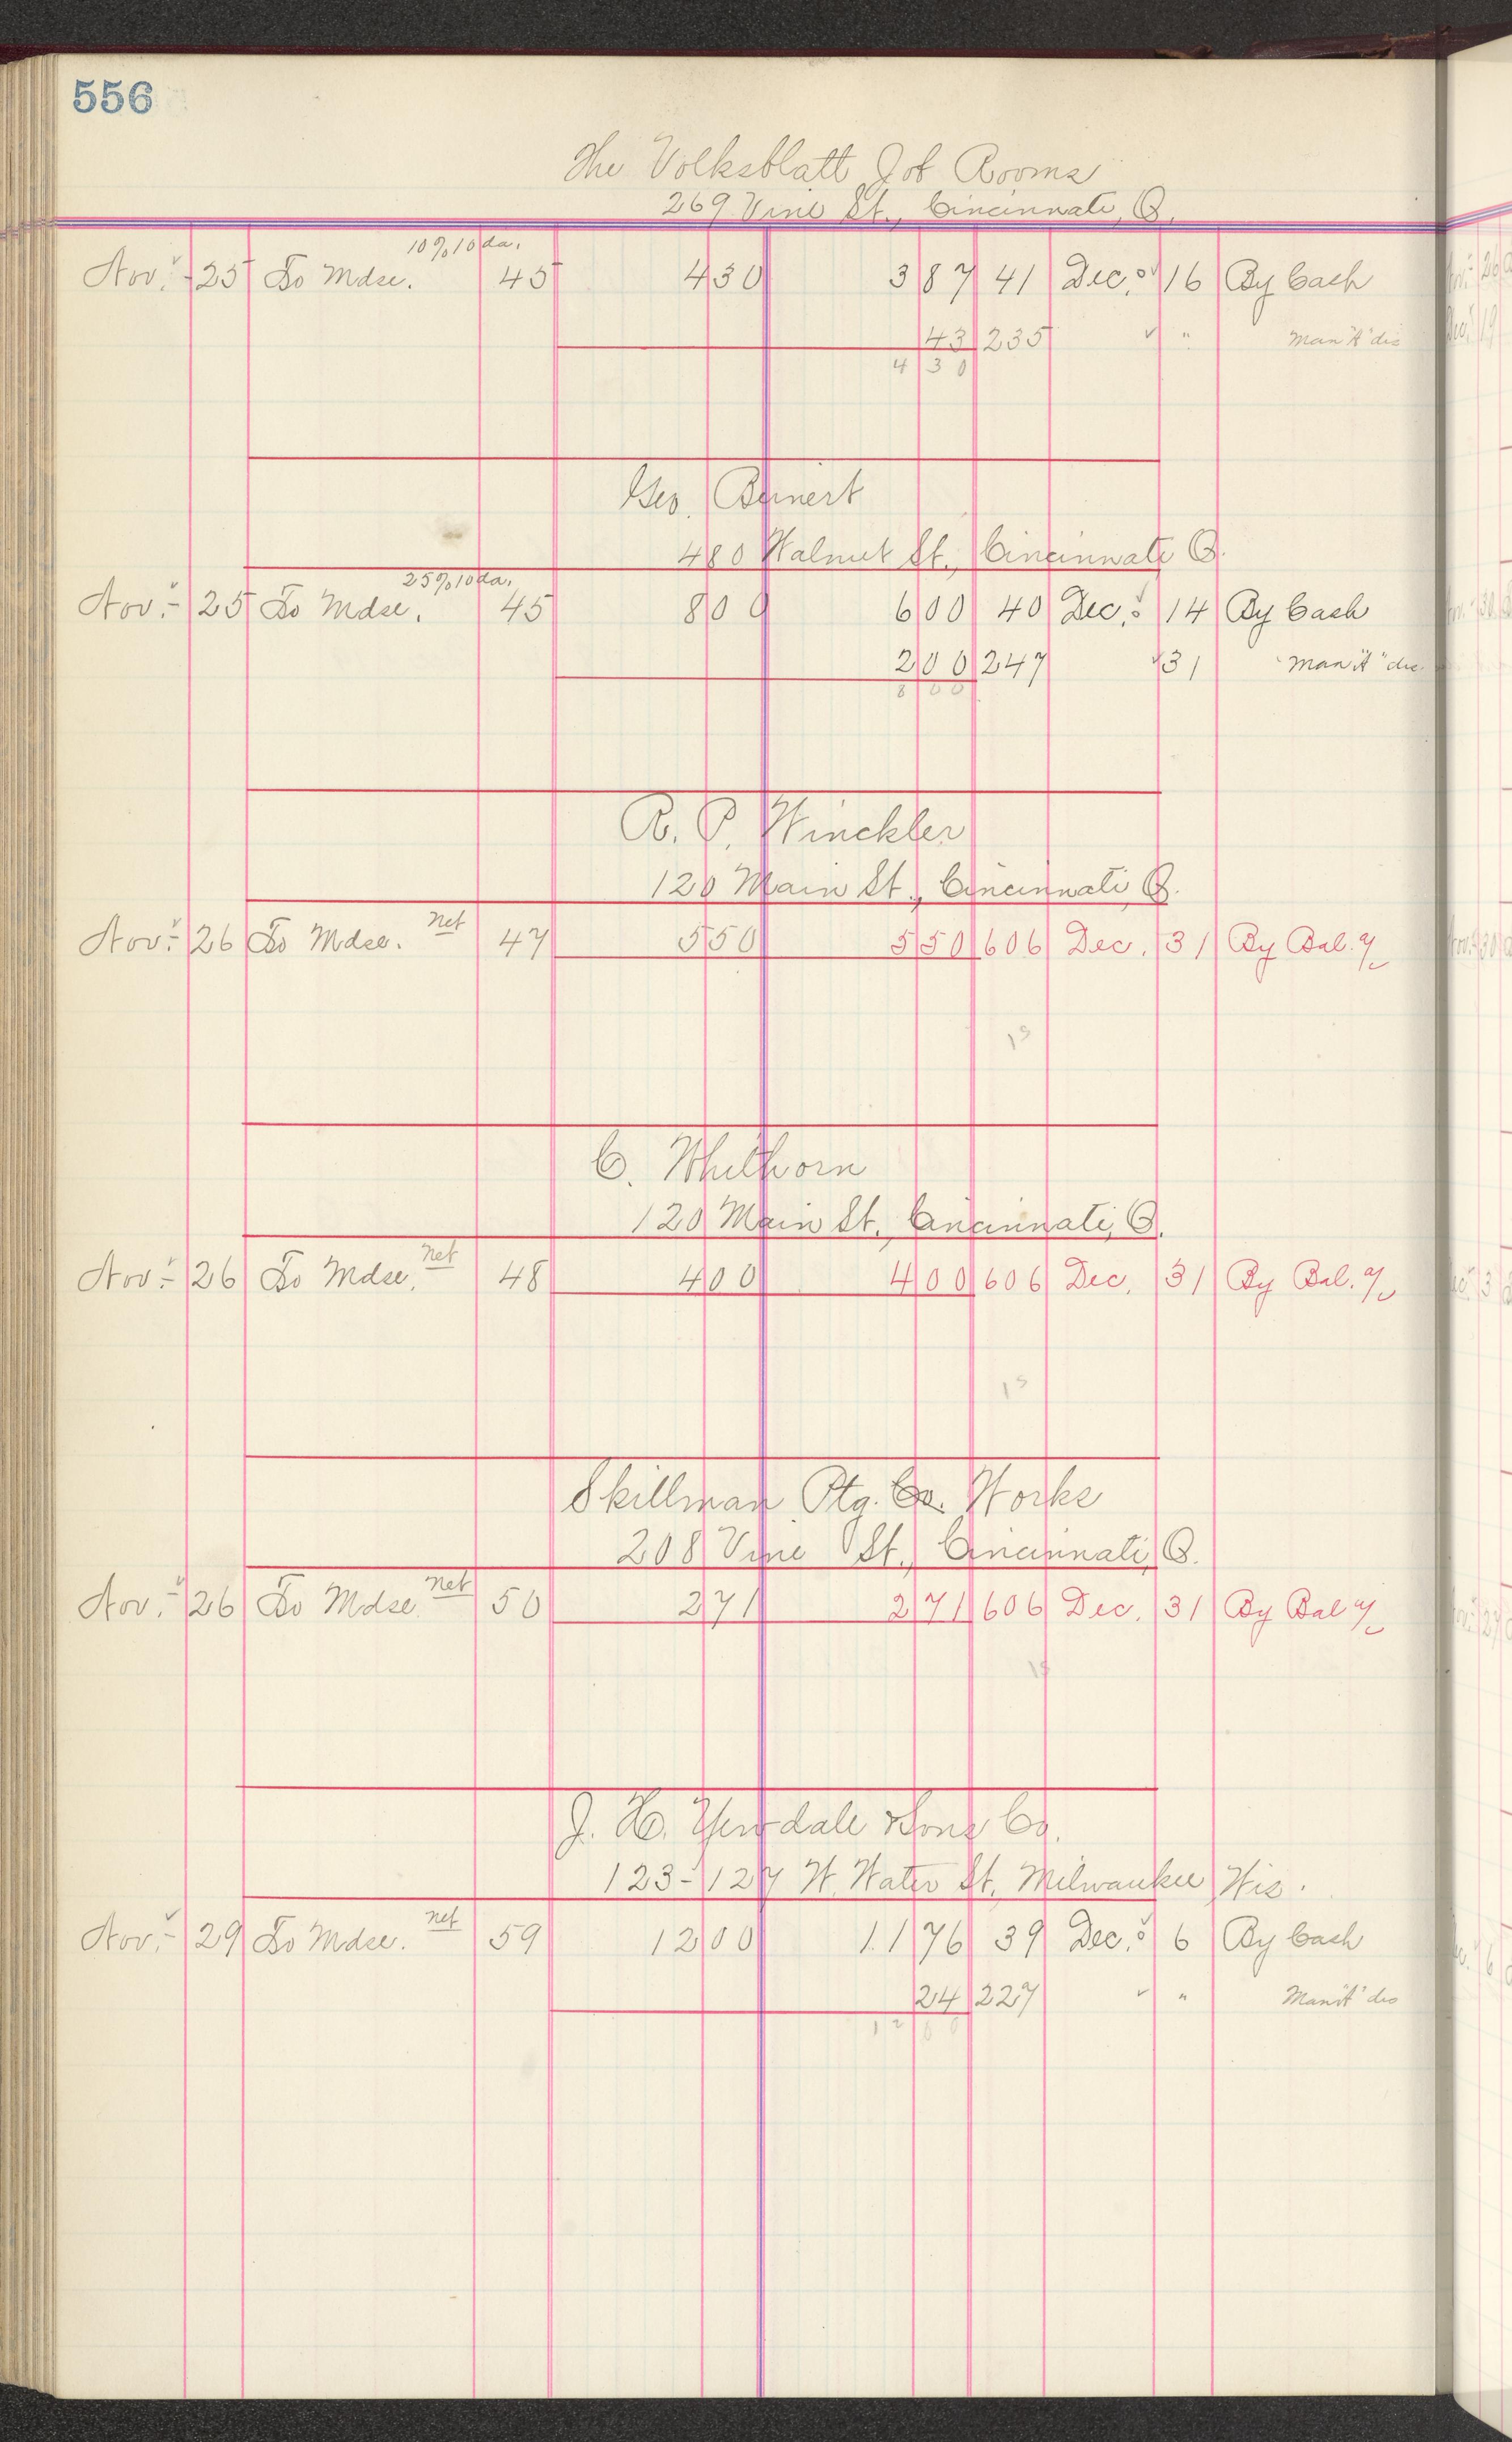 556
The Volksblatt Job Rooms
269 Vine St., Cincinnati, O.
10% 10 da.
Nov. 25 To Mdse. 45 4 30 3 87 41 Dec. 16 By Cash
43 235 " Man "A" dis
4 30
Geo. Bunert
480 Walnut St., Cincinnati O.
25% 10 da.
Nov. 25 To Mdse. 45 8 00 6 00 40 Dec. 14 By Cash
2 00 247 31 " Man "A" dis.
8 00
R. P. Winckler
120 Main St., Cincinnati O.
Nov. 26 To Mdse. net 47 5 50 5 50 606 Dec. 31 By Bal.
15
C. Whithorn
120 Main St., Cincinnati, O.
Nov. 26 To Mdse. net 48 4 00 4 00 606 Dec. 31 By Bal.
15
Skillman Ptg. Co. Works
208 Vine St., Cincinnati, O.
Nov. 26 To Mdse. net 50 2 71 2 71 606 Dec. 31 By Bal
15
J. H. Yewdale & Sons Co.
123-127 W. Water St., Milwaukee Wis.
Nov. 29 To Mdse. net 59 12 00 11 76 39 Dec. 6 By Cash
24 227 " Man "A" dis
12 00